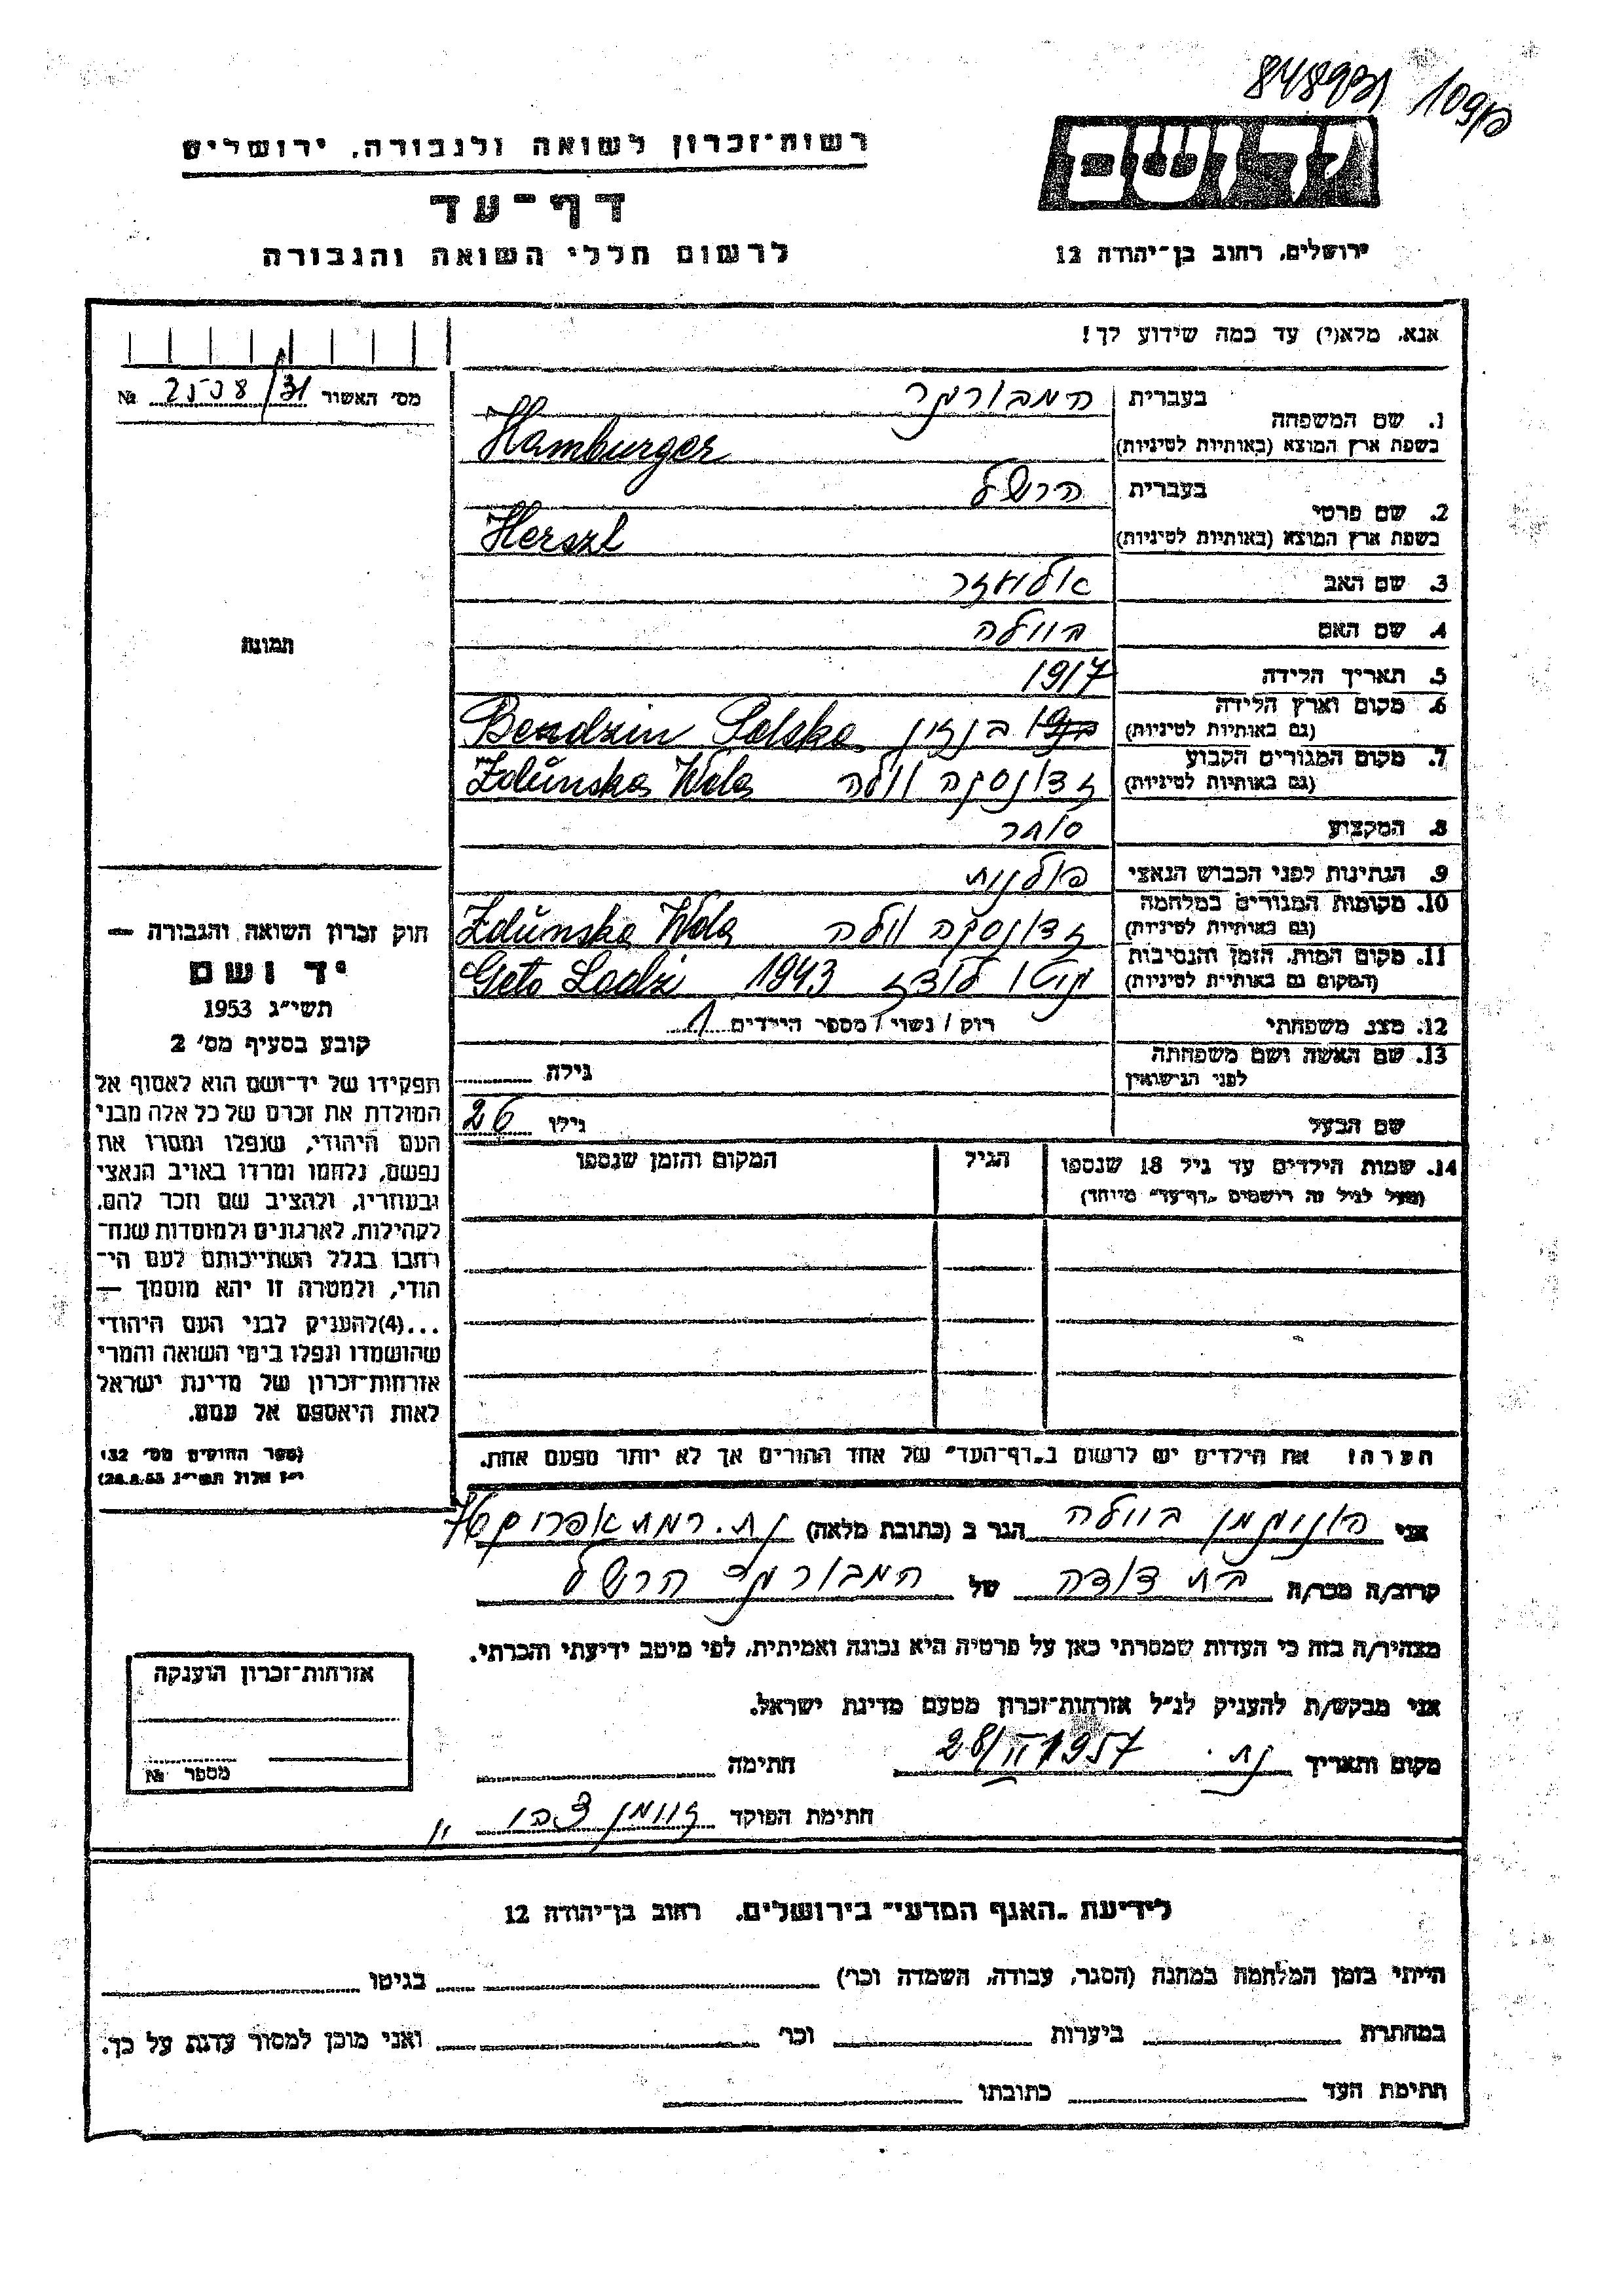 848931 109
רשות־זכרון לשואה ולגבורה, ירושלים
דף־עד
לרשום חללי השואה והגבורה
יד ושם
ירושלים, רחוב בן־יהודה 12
אנא, מלא(י) עד כמה שידוע לך!
מס' האשור 2508/31 №
1. שם המשפחה
בעברית המבורגר
בשפת ארץ המוצא (באותיות לטיניות) Hamburger
2. שם פרטי
בעברית הרשל
בשפת ארץ המוצא (באותיות לטיניות) Herszl
3. שם האב אליעזר
4. שם האם ביילה
5. תאריך הלידה 1917
6. מקום וארץ הלידה
(גם באותיות לטיניות) בנדזין Bendzin Polska
7. מקום המגורים הקבוע
(גם באותיות לטיניות) זדונסקה וולה Zduńska Wola
8. המקצוע סוחר
9. הנתינות לפני הכבוש הנאצי פולנית
10. מקומות המגורים במלחמה
(גם באותיות לטיניות) זדונסקה וולה Zduńska Wola
11. מקום המות, הזמן והנסיבות
(המקום גם באותיות לטיניות) גיטו לודז 1943 Geto Lodzi
12. מצב משפחתי רוק / נשוי / מספר הילדים 1
13. שם האשה ושם משפחתה
לפני הנישואין
גילה
שם הבעל
גילו 26
14. שמות הילדים עד גיל 18 שנספו
(מעל לגיל זה רושמים "דף־עד" מיוחד)
הגיל
המקום והזמן שנספו
הערה! את הילדים יש לרשום ב"דף־העד" של אחד ההורים אך לא יותר מפעם אחת.
תמונת
חוק זכרון השואה והגבורה —
יד ושם
תשי"ג 1953
קובע בסעיף מס' 2
תפקידו של יד־ושם הוא לאסוף אל
המולדת את זכרם של כל אלה מבני
העם היהודי, שנפלו ומסרו את
נפשם, נלחמו ומרדו באויב הנאצי
ובעוזריו, ולהציב שם וזכר להם,
לקהילות, לארגונים ולמוסדות שנח־
רבו בגלל השתייכותם לעם הי־
הודי, ולמטרה זו יהא מוסמך —
...(4) להעניק לבני העם היהודי
שהושמדו ונפלו בימי השואה והמרי
אזרחות־זכרון של מדינת ישראל
לאות היאספם אל עמם.
(ספר החוקים מס' 132,
י"ז אלול תשי"ג 28.8.53)
אני ביילה הגר ב (כתובת מלאה) נת. רמת אפרים 76
קרוב/ה מכר/ה בת דודה של המבורגר הרשל
מצהיר/ה בזה כי העדות שמסרתי כאן על פרטיה היא נכונה ואמיתית, לפי מיטב ידיעתי והכרתי.
אני מבקש/ת להעניק לנ"ל אזרחות־זכרון מטעם מדינת ישראל.
מקום ותאריך נת. 28/II 1957 חתימה
חתימת הפוקד צבי
אזרחות־זכרון הוענקה
מספר №
לידיעת "האגף המדעי" בירושלים, רחוב בן־יהודה 12
הייתי בזמן המלחמה במחנה (הסגר, עבודה, השמדה וכו') בגיטו
במחתרת ביערות וכו' ואני מוכן למסור עדות על כך.
חתימת העד כתובתו